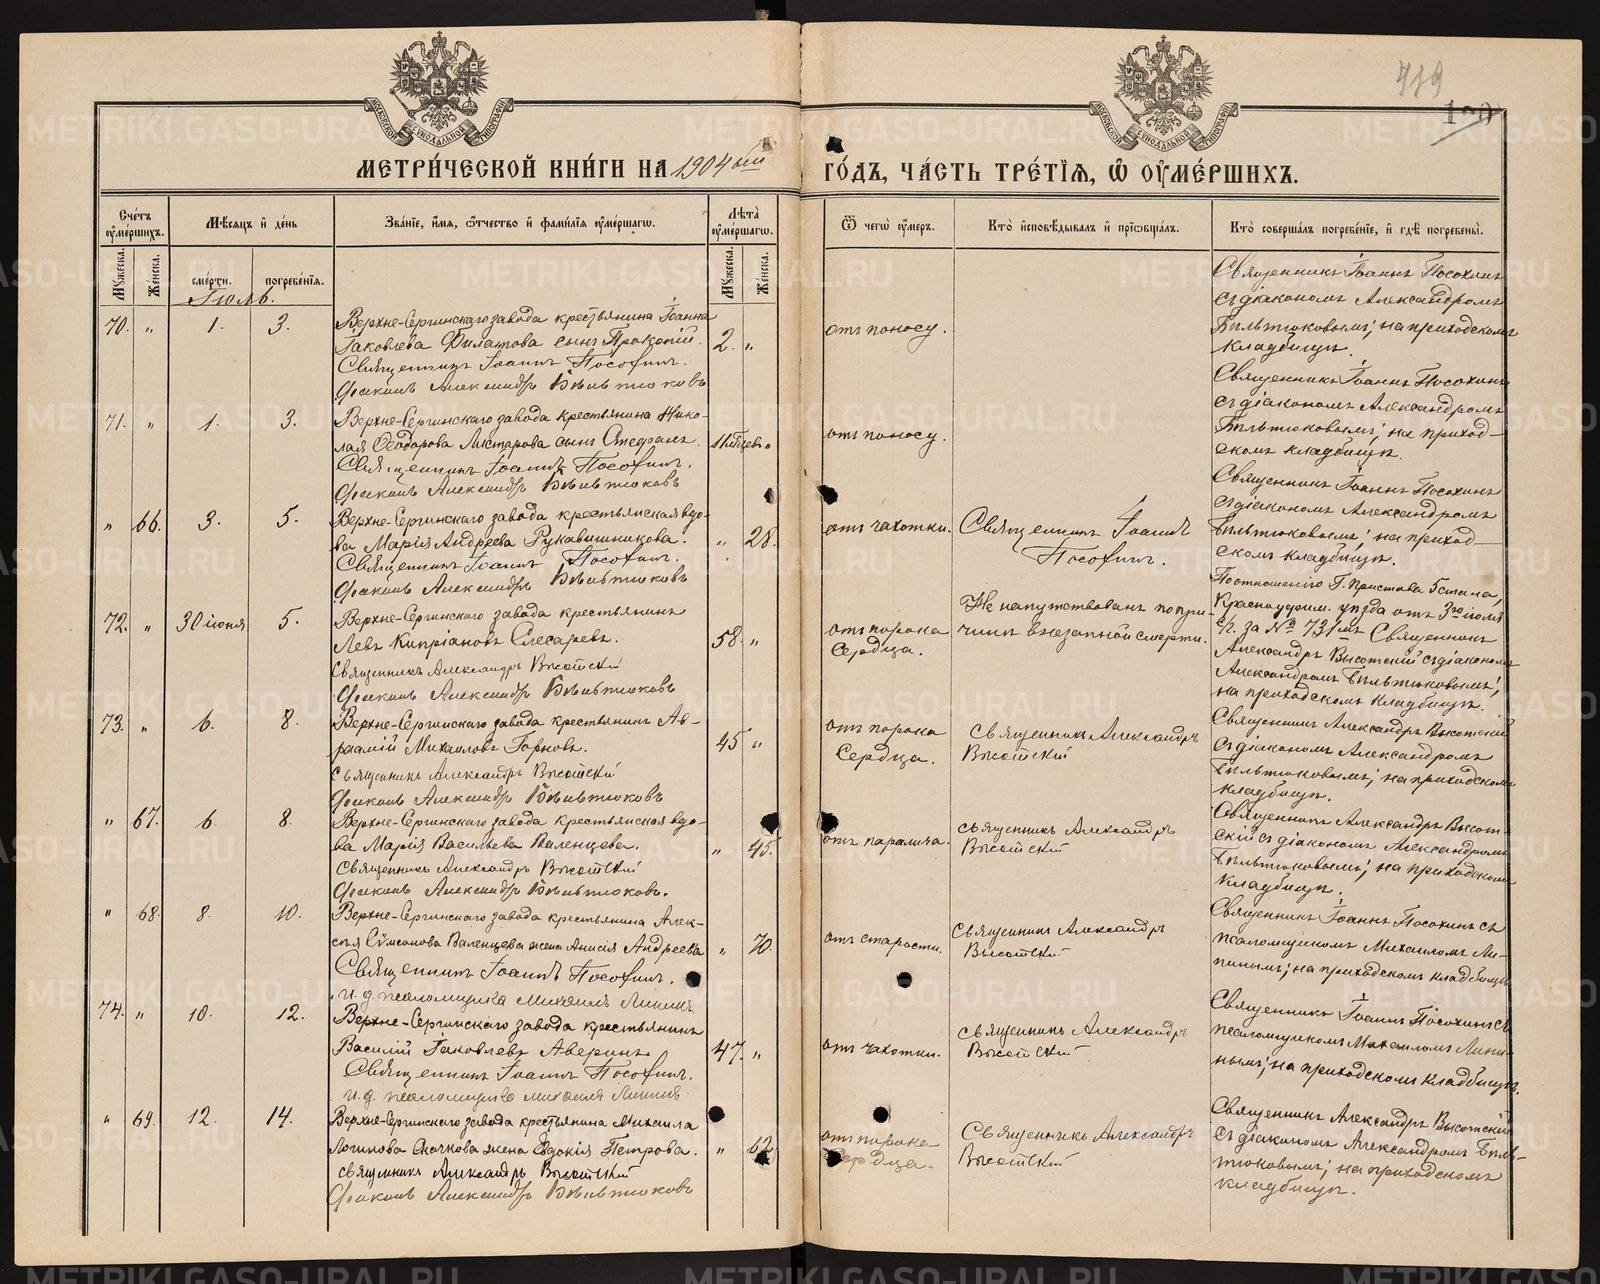 719
МОСКОВСКОЙ СѴНОДАЛЬНОЙ ТИПОГРАФІИ
МОСКОВСКОЙ СѴНОДАЛЬНОЙ ТИПОГРАФІИ
МЕТРИ́ЧЕСКОЙ КНИ́ГИ НА 1904 ый
ГО́ДЪ, ЧА́СТЬ ТРЕ́ТІѦ, Ѡ҆ ОУ҆МЕ́РШИХЪ.
Сче́тъ оу҆ме́ршихъ.
Мѣ́сяцъ и҆ де́нь
Зва́нїе, и҆́мя, ѻ҆́тчество и҆ фами́лїя оу҆ме́ршагѡ.
Лѣта̀ оу҆ме́ршагѡ.
Ѿ чегѡ̀ оу҆́меръ.
Кто̀ и҆сповѣ́дывалъ и҆ прїѡбща́лъ.
Кто̀ соверша́лъ погребе́нїе, и҆ гдѣ̀ погребены̀.
Мꙋ́жеска.
Же́нска.
сме́рти.
погребе́нїя.
Мꙋ́жеска.
Же́нска.
Іюль.
70. „ 1. 3.
Верхне-Сергинскаго завода крестьянина Іоанна
Іаковлева Филатова сынъ Прокопій.
2. „
Священникъ Іоаннъ Посохинъ.
Діаконъ Александръ Бѣльтюковъ
отъ поносу.
Священникъ Іоаннъ Посохинъ
съ діакономъ Александромъ
Бѣльтюковымъ; на приходскомъ
кладбищѣ.
71. „ 1. 3.
Верхне-Сергинскаго завода крестьянина Нико-
лая Ѳеодорова Листарова сынъ Стефанъ.
Священникъ Іоаннъ Посохинъ.
Діаконъ Александръ Бѣльтюковъ
отъ поносу.
Священникъ Іоаннъ Посохинъ
съ діакономъ Александромъ
Бѣльтюковымъ; на приход-
скомъ кладбищѣ.
„ 66. 3. 5.
Верхне-Сергинскаго завода крестьянская вдо-
ва Марія Андреева Рукавишникова.
„ 28.
Священникъ Іоаннъ Посохинъ.
Діаконъ Александръ Бѣльтюковъ
отъ чахотки.
Священникъ Іоаннъ
Посохинъ.
Священникъ Іоаннъ Посохинъ
съ діакономъ Александромъ
Бѣльтюковымъ; на приход-
скомъ кладбищѣ.
72. „ 30 іюня 5.
Верхне-Сергинскаго завода крестьянинъ
Левъ Кипріановъ Слесаревъ.
58. „
Священникъ Александръ Высотскій
Діаконъ Александръ Бѣльтюковъ
отъ порока
сердца.
Не напутствованъ по при-
чинѣ внезапной смерти.
По отношенію Г. Пристава 5 стана,
Красноуфим. уѣзда отъ 3го іюля
с/г. за № 731мъ Священникъ
Александръ Высотскій съ діакономъ
Александромъ Бѣльтюковымъ;
на приходскомъ кладбищѣ.
73. „ 6. 8.
Верхне-Сергинскаго завода крестьянинъ Ав-
раамій Михаиловъ Горновъ.
45 „
Священникъ Александръ Высотскій
Діаконъ Александръ Бѣльтюковъ
отъ порока
сердца.
Священникъ Александръ
Высотскій
Священникъ Александръ Высотскій
съ діакономъ Александромъ
Бѣльтюковымъ; на приходскомъ
кладбищѣ.
„ 67. 6. 8.
Верхне-Сергинскаго завода крестьянская вдо-
ва Марія Васильева Валенцева.
„ 45.
Священникъ Александръ Высотскій
Діаконъ Александръ Бѣльтюковъ.
отъ паралича.
Священникъ Александръ
Высотскій
Священникъ Александръ Высот-
скій съ діакономъ Александромъ
Бѣльтюковымъ; на приходскомъ
кладбищѣ.
„ 68. 8. 10.
Верхне-Сергинскаго завода крестьянина Алек-
сѣя Сѵмеонова Валенцева жена Анисія Андреева
„ 70.
Священникъ Іоаннъ Посохинъ.
и. д. псаломщика Михаилъ Липинъ
отъ старости.
Священникъ Александръ
Высотскій
Священникъ Іоаннъ Посохинъ съ
псаломщикомъ Михаиломъ Ли-
пинымъ; на приходскомъ кладбищѣ
74. „ 10. 12.
Верхне-Сергинскаго завода крестьянинъ
Василій Іаковлевъ Аверинъ
47. „
Священникъ Іоаннъ Посохинъ.
и. д. псаломщика Михаилъ Липинъ
отъ чахотки.
Священникъ Александръ
Высотскій
Священникъ Іоаннъ Посохинъ съ
псаломщикомъ Михаиломъ Липи-
нымъ; на приходскомъ кладбищѣ.
„ 69. 12. 14.
Верхне-Сергинскаго завода крестьянина Михаила
Логинова Скачкова жена Евдокія Петрова.
„ 62
Священникъ Александръ Высотскій
Діаконъ Александръ Бѣльтюковъ
отъ порока
сердца.
Священникъ Александръ
Высотскій
Священникъ Александръ Высотскій
съ діакономъ Александромъ Бѣль-
тюковымъ; на приходскомъ
кладбищѣ.
METRIKI.GASO-URAL.RU